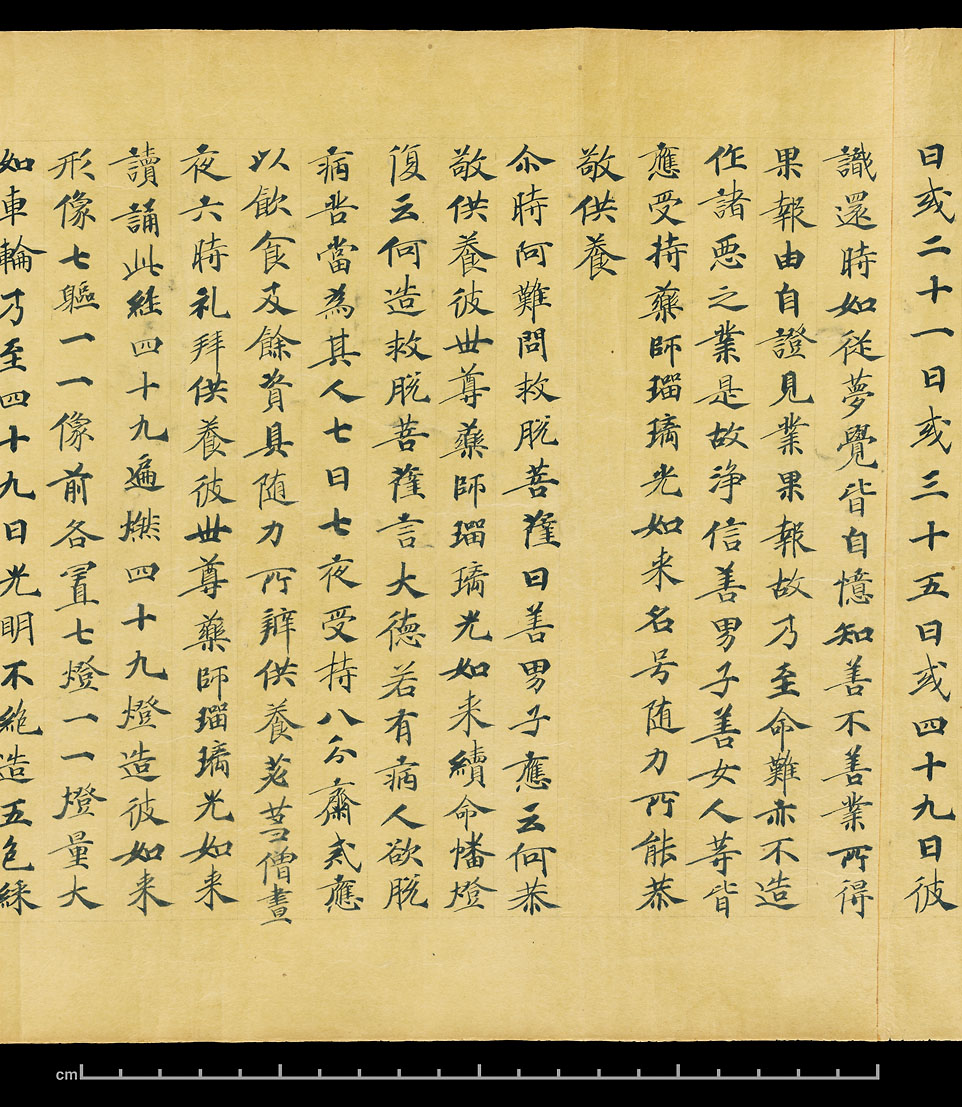 日或二十一日或三十五日或四十九日彼
識還時如従夢覺皆自憶知善不善業所得
果報由自證見業果報故乃至命難亦不造
作諸惡之業是故淨信善男子善女人等皆
應受持藥師瑠璃光如来名号随力所能恭
敬供養
尒時阿難問救脱菩薩曰善男子應云何恭
敬供養彼世尊藥師瑠璃光如来續命幡燈
復云何造救脱菩薩言大德若有病人欲脱
病苦當為其人七日七夜受持八分齋戒應
以飲食及餘資具随力所辦供養苾芻僧晝
夜六時礼拜供養彼世尊藥師瑠璃光如来
讀誦此經四十九遍燃四十九燈造彼如来
形像七軀一一像前各置七燈一一燈量大
如車輪乃至四十九日光明不絶造五色綵
cm